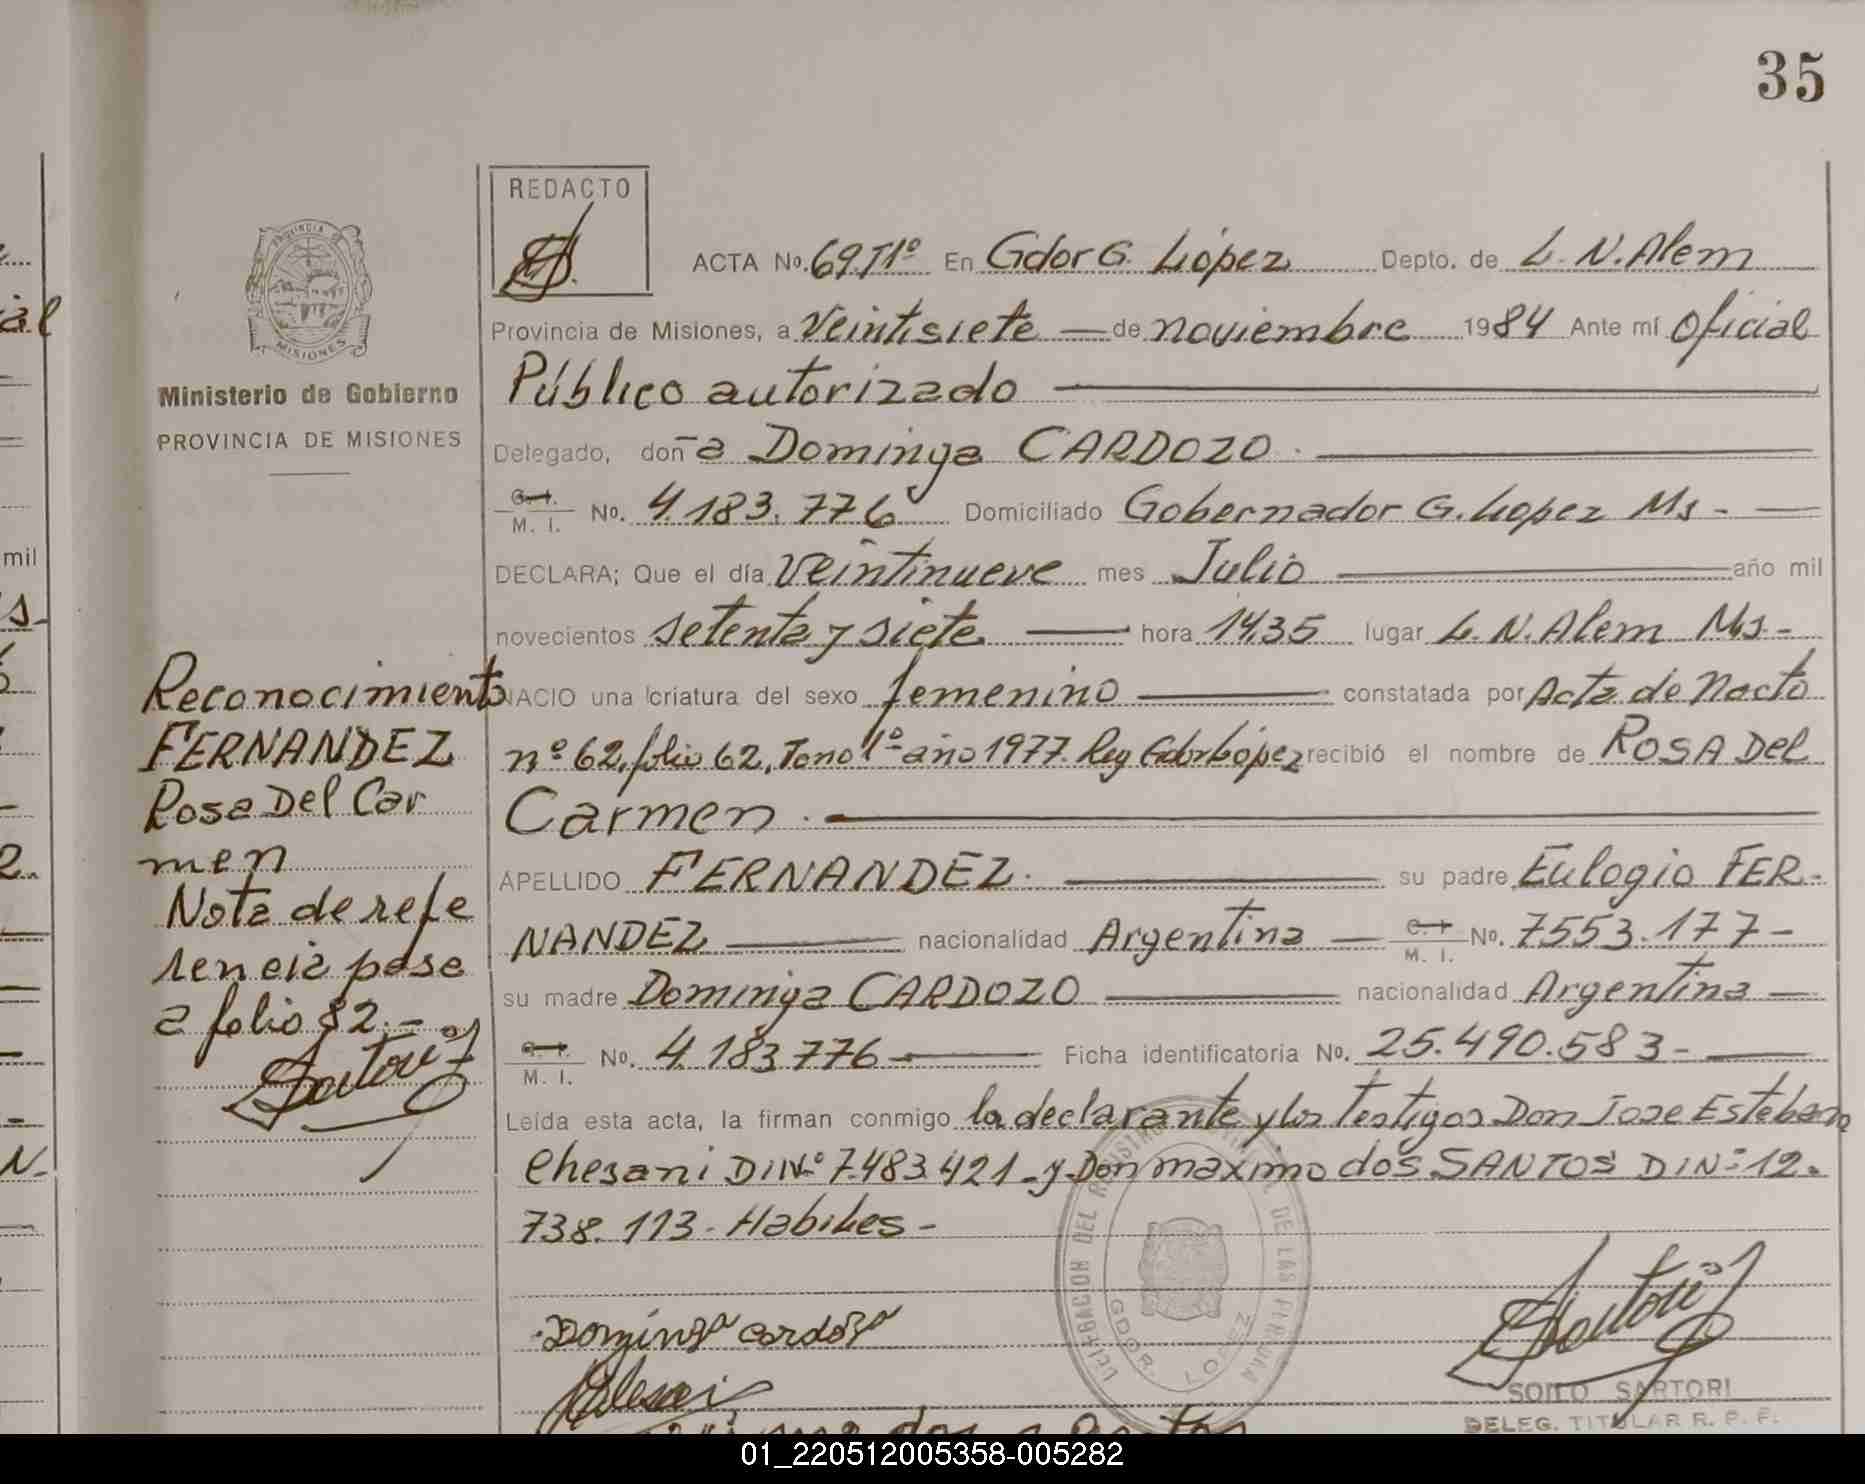 35
REDACTO
PROVINCIA DE
MISIONES
Ministerio de Gobierno
PROVINCIA DE MISIONES
ACTA No. 69.T1º En Gdor G. López Depto. de L. N. Alem
Provincia de Misiones, a Veintisiete — de noviembre 1984 Ante mí Oficial
Público autorizado
Delegado, don~a Dominga CARDOZO.
C. I.
M. I. No. 4.183.776 Domiciliado Gobernador G. Lopez Ms -
DECLARA; Que el día Veintinueve mes Julio año mil
novecientos setenta y siete hora 14,35 lugar L. N. Alem Ms.-
NACIO una criatura del sexo femenino constatada por Acta de Nacto
nº 62, folio 62, Tomo 1º año 1977. Reg Gdor López recibió el nombre de ROSA Del
Carmen.
APELLIDO FERNANDEZ. su padre Eulogio FER-
NANDEZ nacionalidad Argentina — C. I.
M. I. No. 7553.177-
su madre Dominga CARDOZO nacionalidad Argentina —
C. I.
M. I. No. 4.183.776 Ficha identificatoria No. 25.490.583-
Leída esta acta, la firman conmigo la declarante y los Testigos Don Jose Esteban
Chesani DINº 7.483.421 - y Don maximo dos SANTOS DINº 12.
738.113- Habiles-
Reconocimiento
FERNANDEZ
Rosa Del Car
men
Nota de refe
rencia pasa
a folio 82.-
Sartori
Dominga Cardozo
Chesani
Sartori
SOILO SARTORI
DELEG. TITULAR R. P. P.
DELEGACION DEL REGISTRO DE LAS PERSONAS
GDOR. LOPEZ
mil
al
s.
2.
N.
01_220512005358-005282